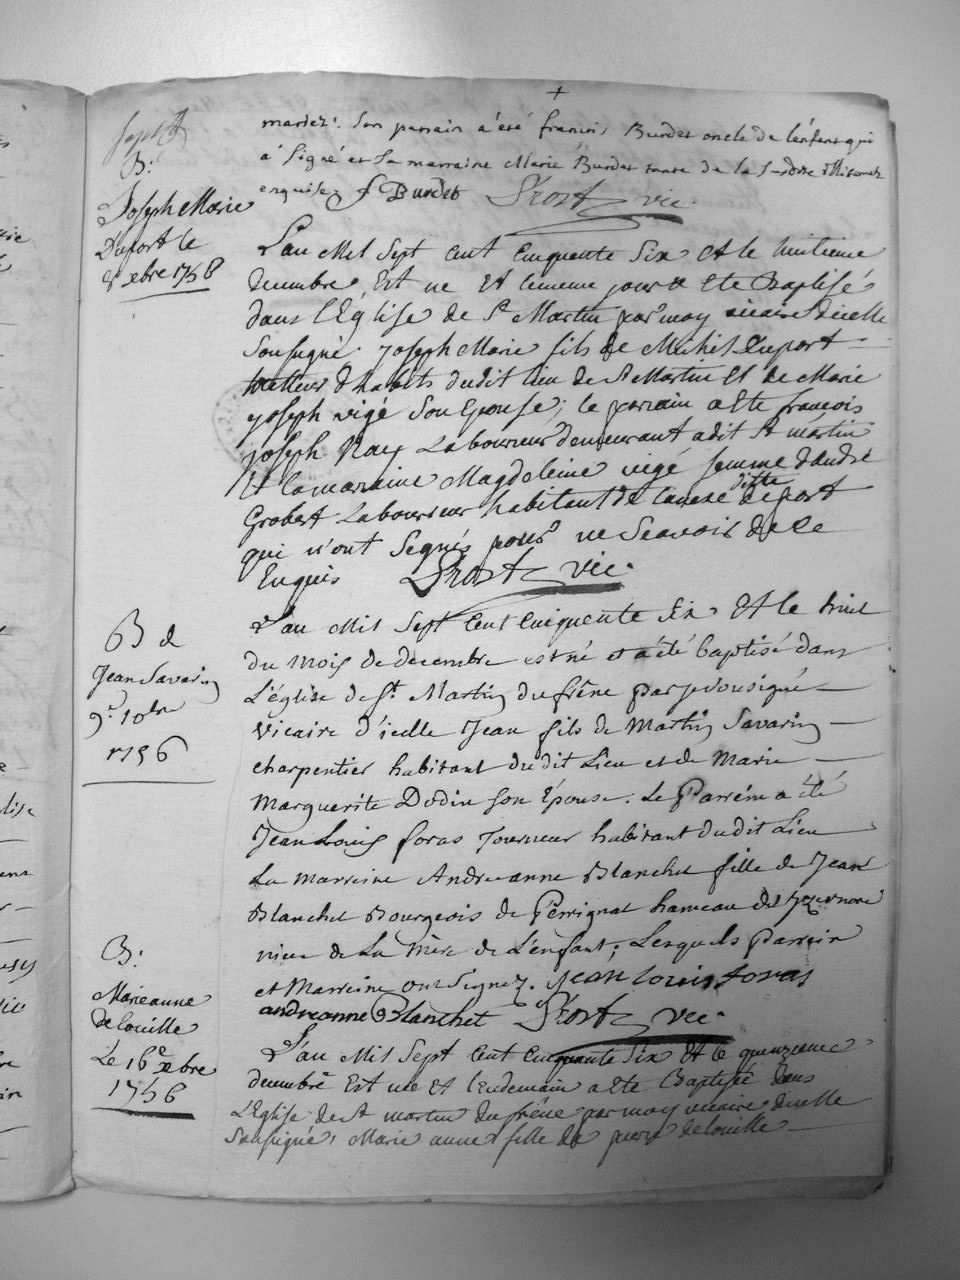 mariez. Son parrain a été francois Burdet oncle de l'enfant qui
a Signé et La marraine Marie Burdet tante de la
enquise. f Burdet Prost vic.
B:
Joseph Marie
Duport le
8e xbre 1756
L'an Mil Sept Cent Cinquante Six Et le huitieme
decembre Est ne Et le meme jour a Ete Baptisé
dans l'Eglise de St Martin par moy vicaire d'icelle
Sousigné joseph Marie fils de Michel Duport
tailleur d'habits dudit lieu de St Martin Et de Marie
joseph vigé Son Epouse; le parrain a Ete francois
joseph Nay Laboureur demeurant a dit St martin
Et la maraine Magdeleine vigé femme d'andré
Grobert Laboureur habitant de ditte
qui n'ont Segnés pour ne Scavoir de ce
Enquis Prost vic.
B de
Jean Savarin
9e 10bre
1756
L'an Mil Sept Cent Cinquante Six Et le huit
du mois de decembre est né et a été baptisé dans
L'église de St. Martin du frêne par je sousigné
Vicaire d'icelle Jean fils de Martin Savarin
charpentier habitant dudit Lieu et de Marie
Marguerite Dodin son Epouse. Le Parrein a été
Jean Louis foras Tourneur habitant dudit Lieu
La marreine Andreanne Blanchet fille de Jean
Blanchet Bourgeois de Perrignat hameau d'Izernore
niece de La Mère de L'enfant; Lesquels Parrein
et Marreine ont Signez. jean louis foras
andreanne Blanchet Prost vic.
B:
Marieanne
Delouille
Le 16e xbre
1756
L'an Mil Sept Cent Cinquante Six Et le quinzieme
decembre Est nee Et l'endemain a Ete Baptisée dans
L'Eglise de St martin du frêne par moy vicaire d'icelle
Sousigné, Marie anne fille de pierre delouille